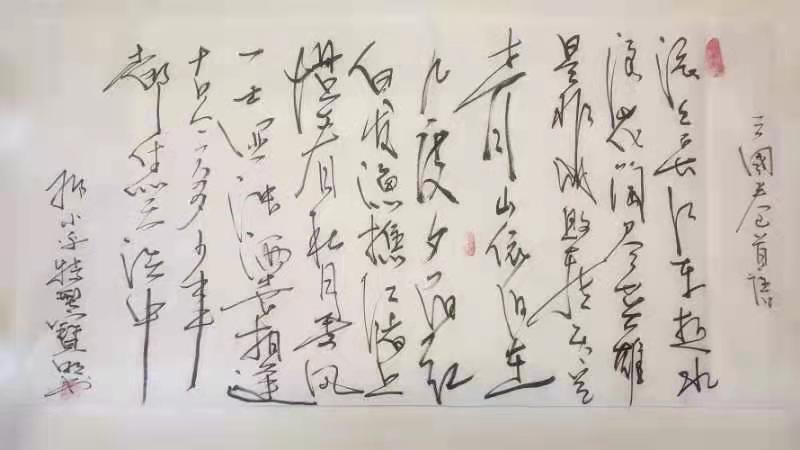 三國卷首語
滚々长江东逝水
浪花淘尽英雄
是非成败转头空
青山依旧在
几度夕阳红
白发渔樵江渚上
惯看秋月春风
一壶浊酒喜相逢
古今多少事
都付笑谈中